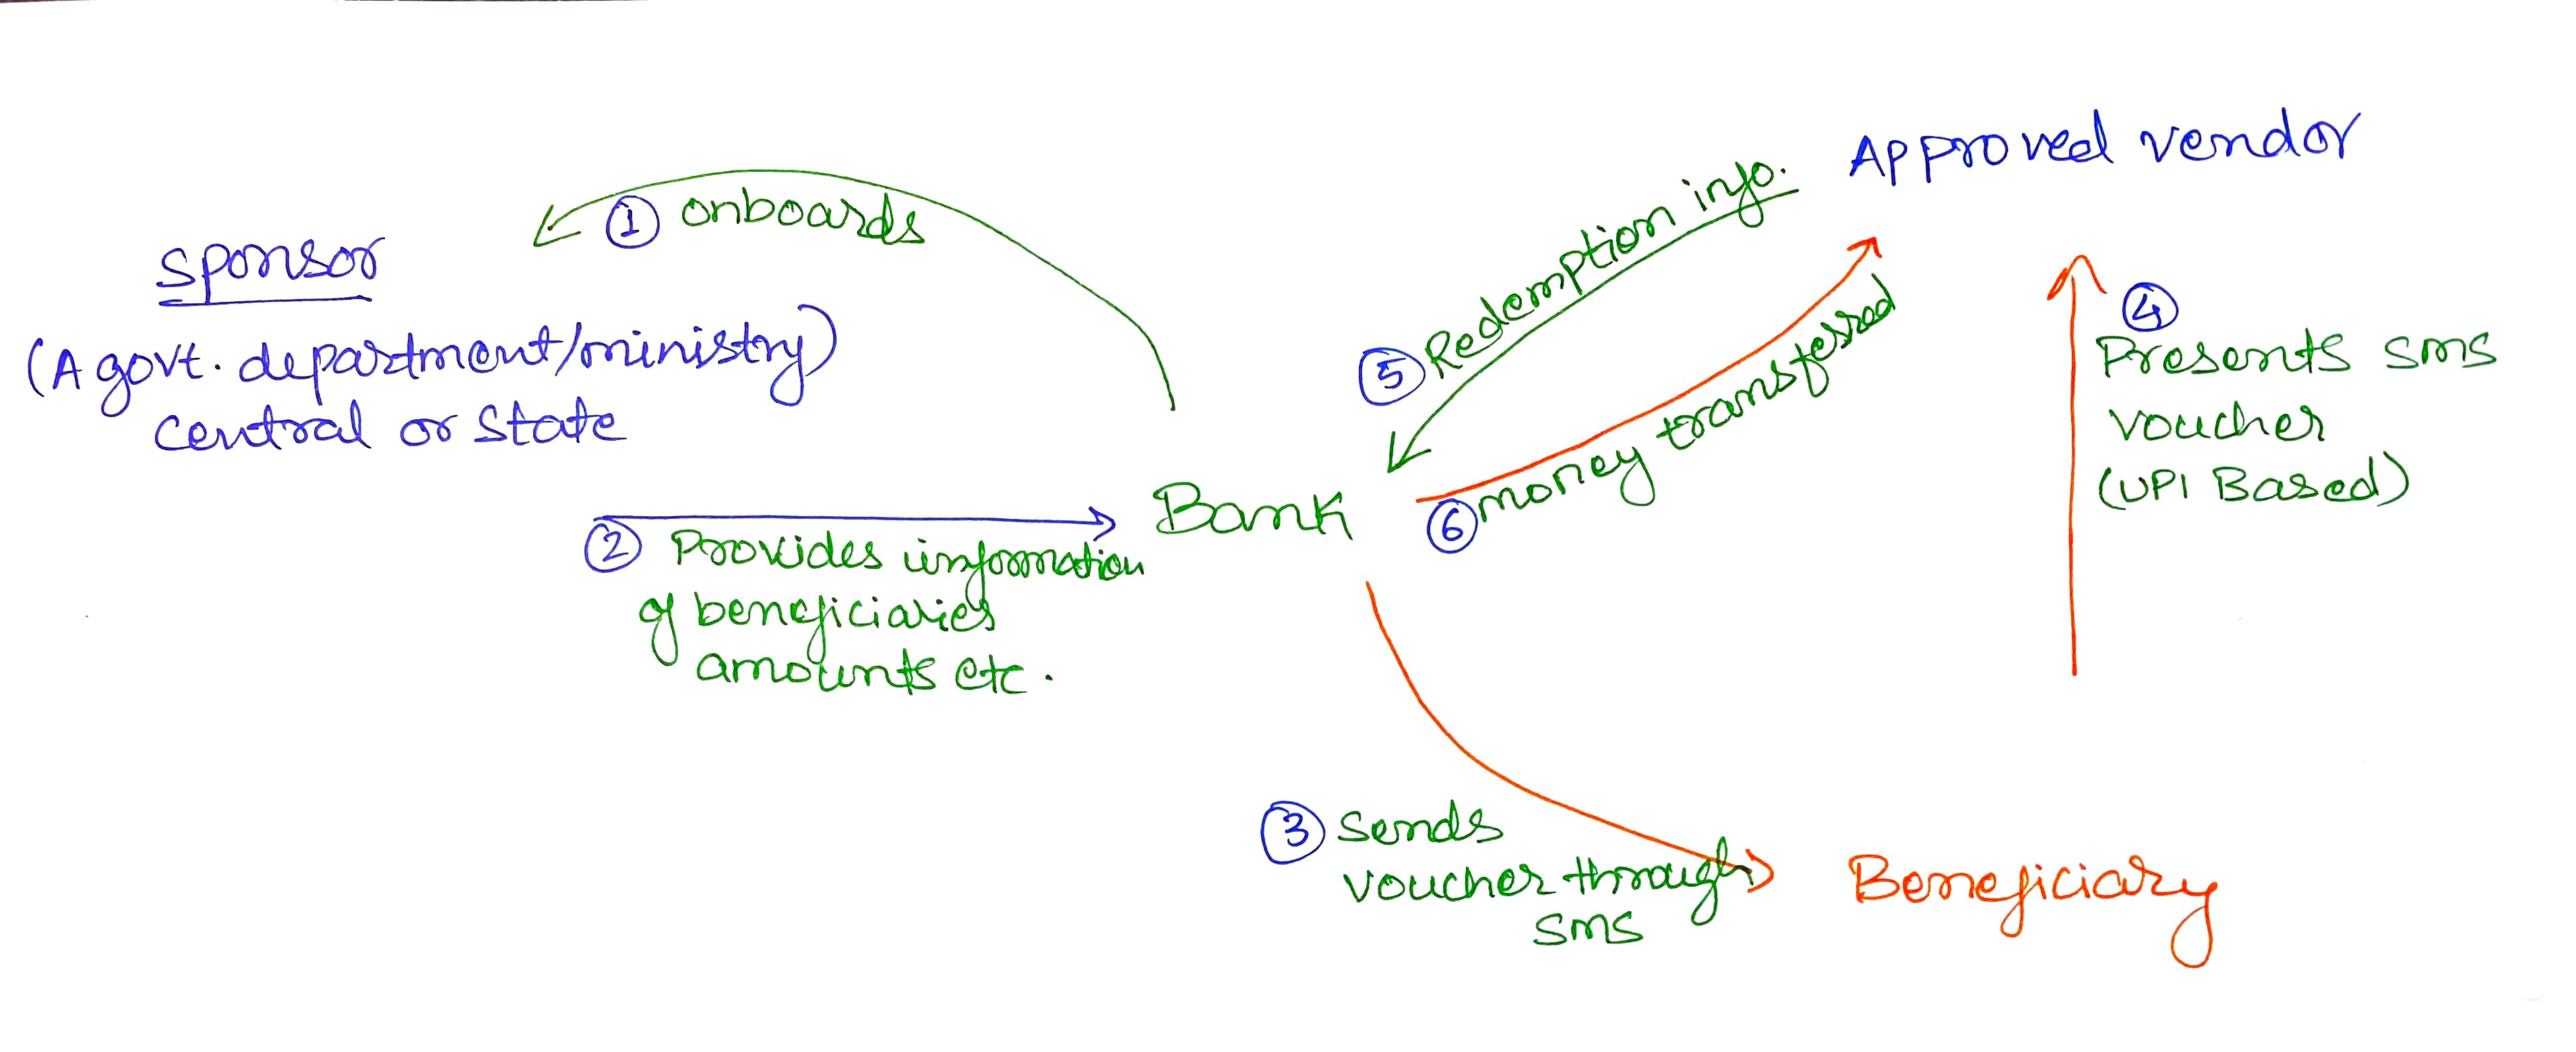 Sponsor
(A govt. department/ministry)
central or state
① onboards
② Provides information
of beneficiaries
amounts etc.
Bank
③ Sends
voucher through
sms
Beneficiary
④
Presents sms
voucher
(UPI Based)
Approved vendor
⑤ Redemption info.
⑥ money transferred